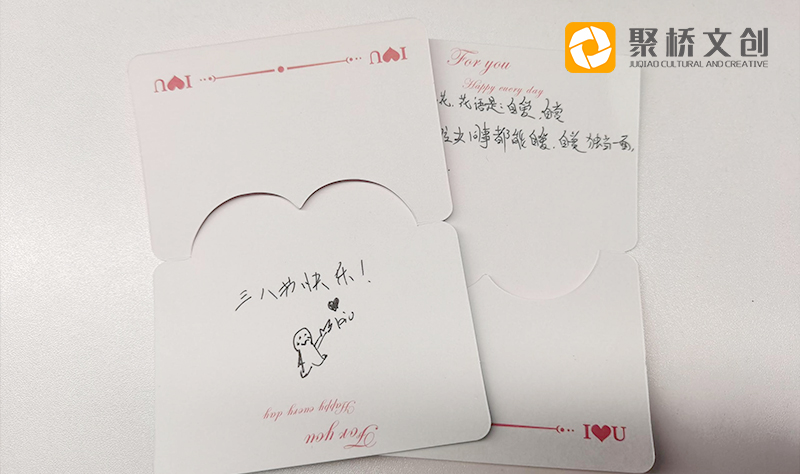 聚桥文创
JUQIAO CULTURAL AND CREATIVE
I❤U
I❤U
三八节快乐！
biu
For you
Happy every day
For you
Happy every day
花，花语是：自爱，
同事都能自爱，独当一面，
I❤U